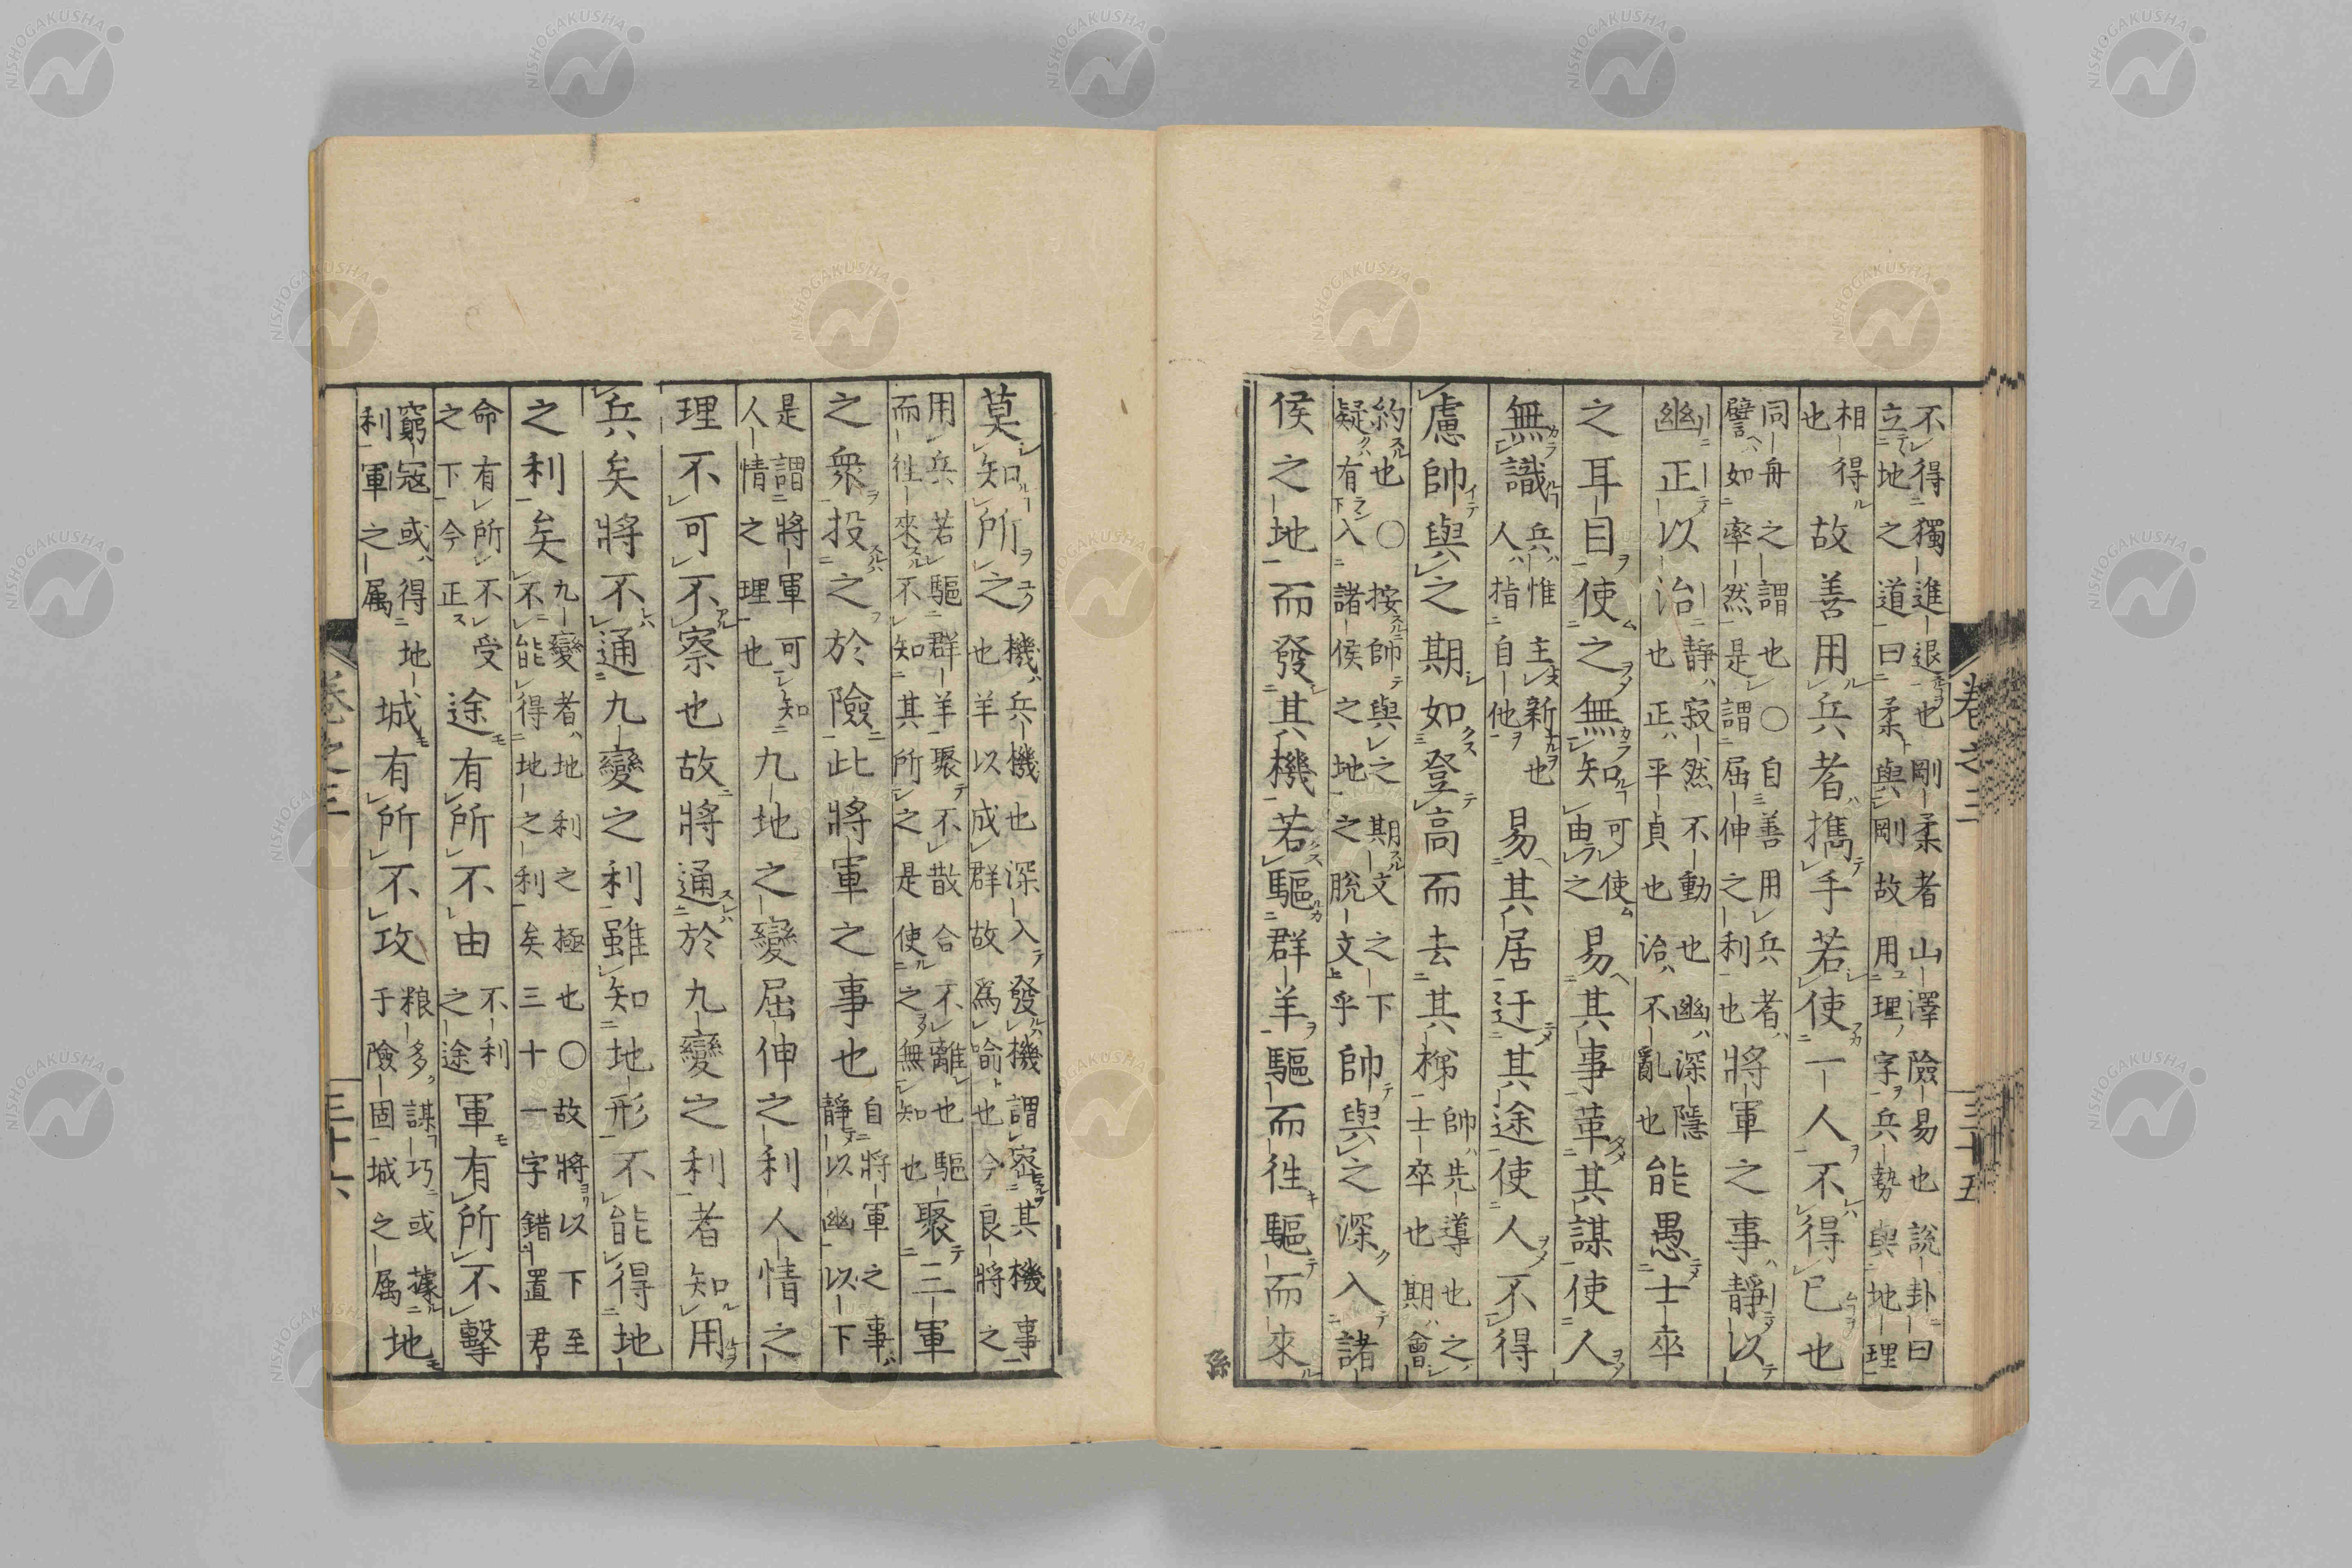 卷之三
三十五
不得獨進退也剛柔者山澤險易也說卦曰
立地之道曰柔與剛故用理字兵勢與地理
相得
也
故善用兵者擕手若使一人不得已也
同舟之謂也○自善用兵者
譬如率然是謂屈伸之利也
將軍之事靜以
幽正以治
靜寂然不動也幽深隱
也正平貞也治不亂也
能愚士卒
之耳目使之無知
可使
由之
易其事革其謀使人
無識
兵惟主新也
人指自他
易其居迂其途使人不得
慮帥與之期如登高而去其梯
帥先導也之
士卒也期會
約也○按帥與之期文之下
疑有入諸侯之地之脫文乎
帥與之深入諸
侯之地而發其機若驅群羊驅而往驅而來
孫
莫知所之
機兵機也深入發機謂密其機事
也羊以成群故為喻也今良將之
用兵若驅群羊聚不散合不離也驅
而往來不知其所之是使之無知也
聚三軍
之衆投之於險此將軍之事也
自將軍之事
靜以幽以下
是謂將軍可知
人情之理也
九地之變屈伸之利人情之
理不可不察也故將通於九變之利者知用
兵矣將不通九變之利雖知地形不能得地
之利矣
九變者地利之極也○故將以下至
不能得地之利矣三十一字錯置君
命有所不受
之下今正
途有所不由
不利
之途
軍有所不擊
窮寇或得地
利軍之属
城有所不攻
粮多謀巧或據
于險固城之属
地
卷之三
三十六